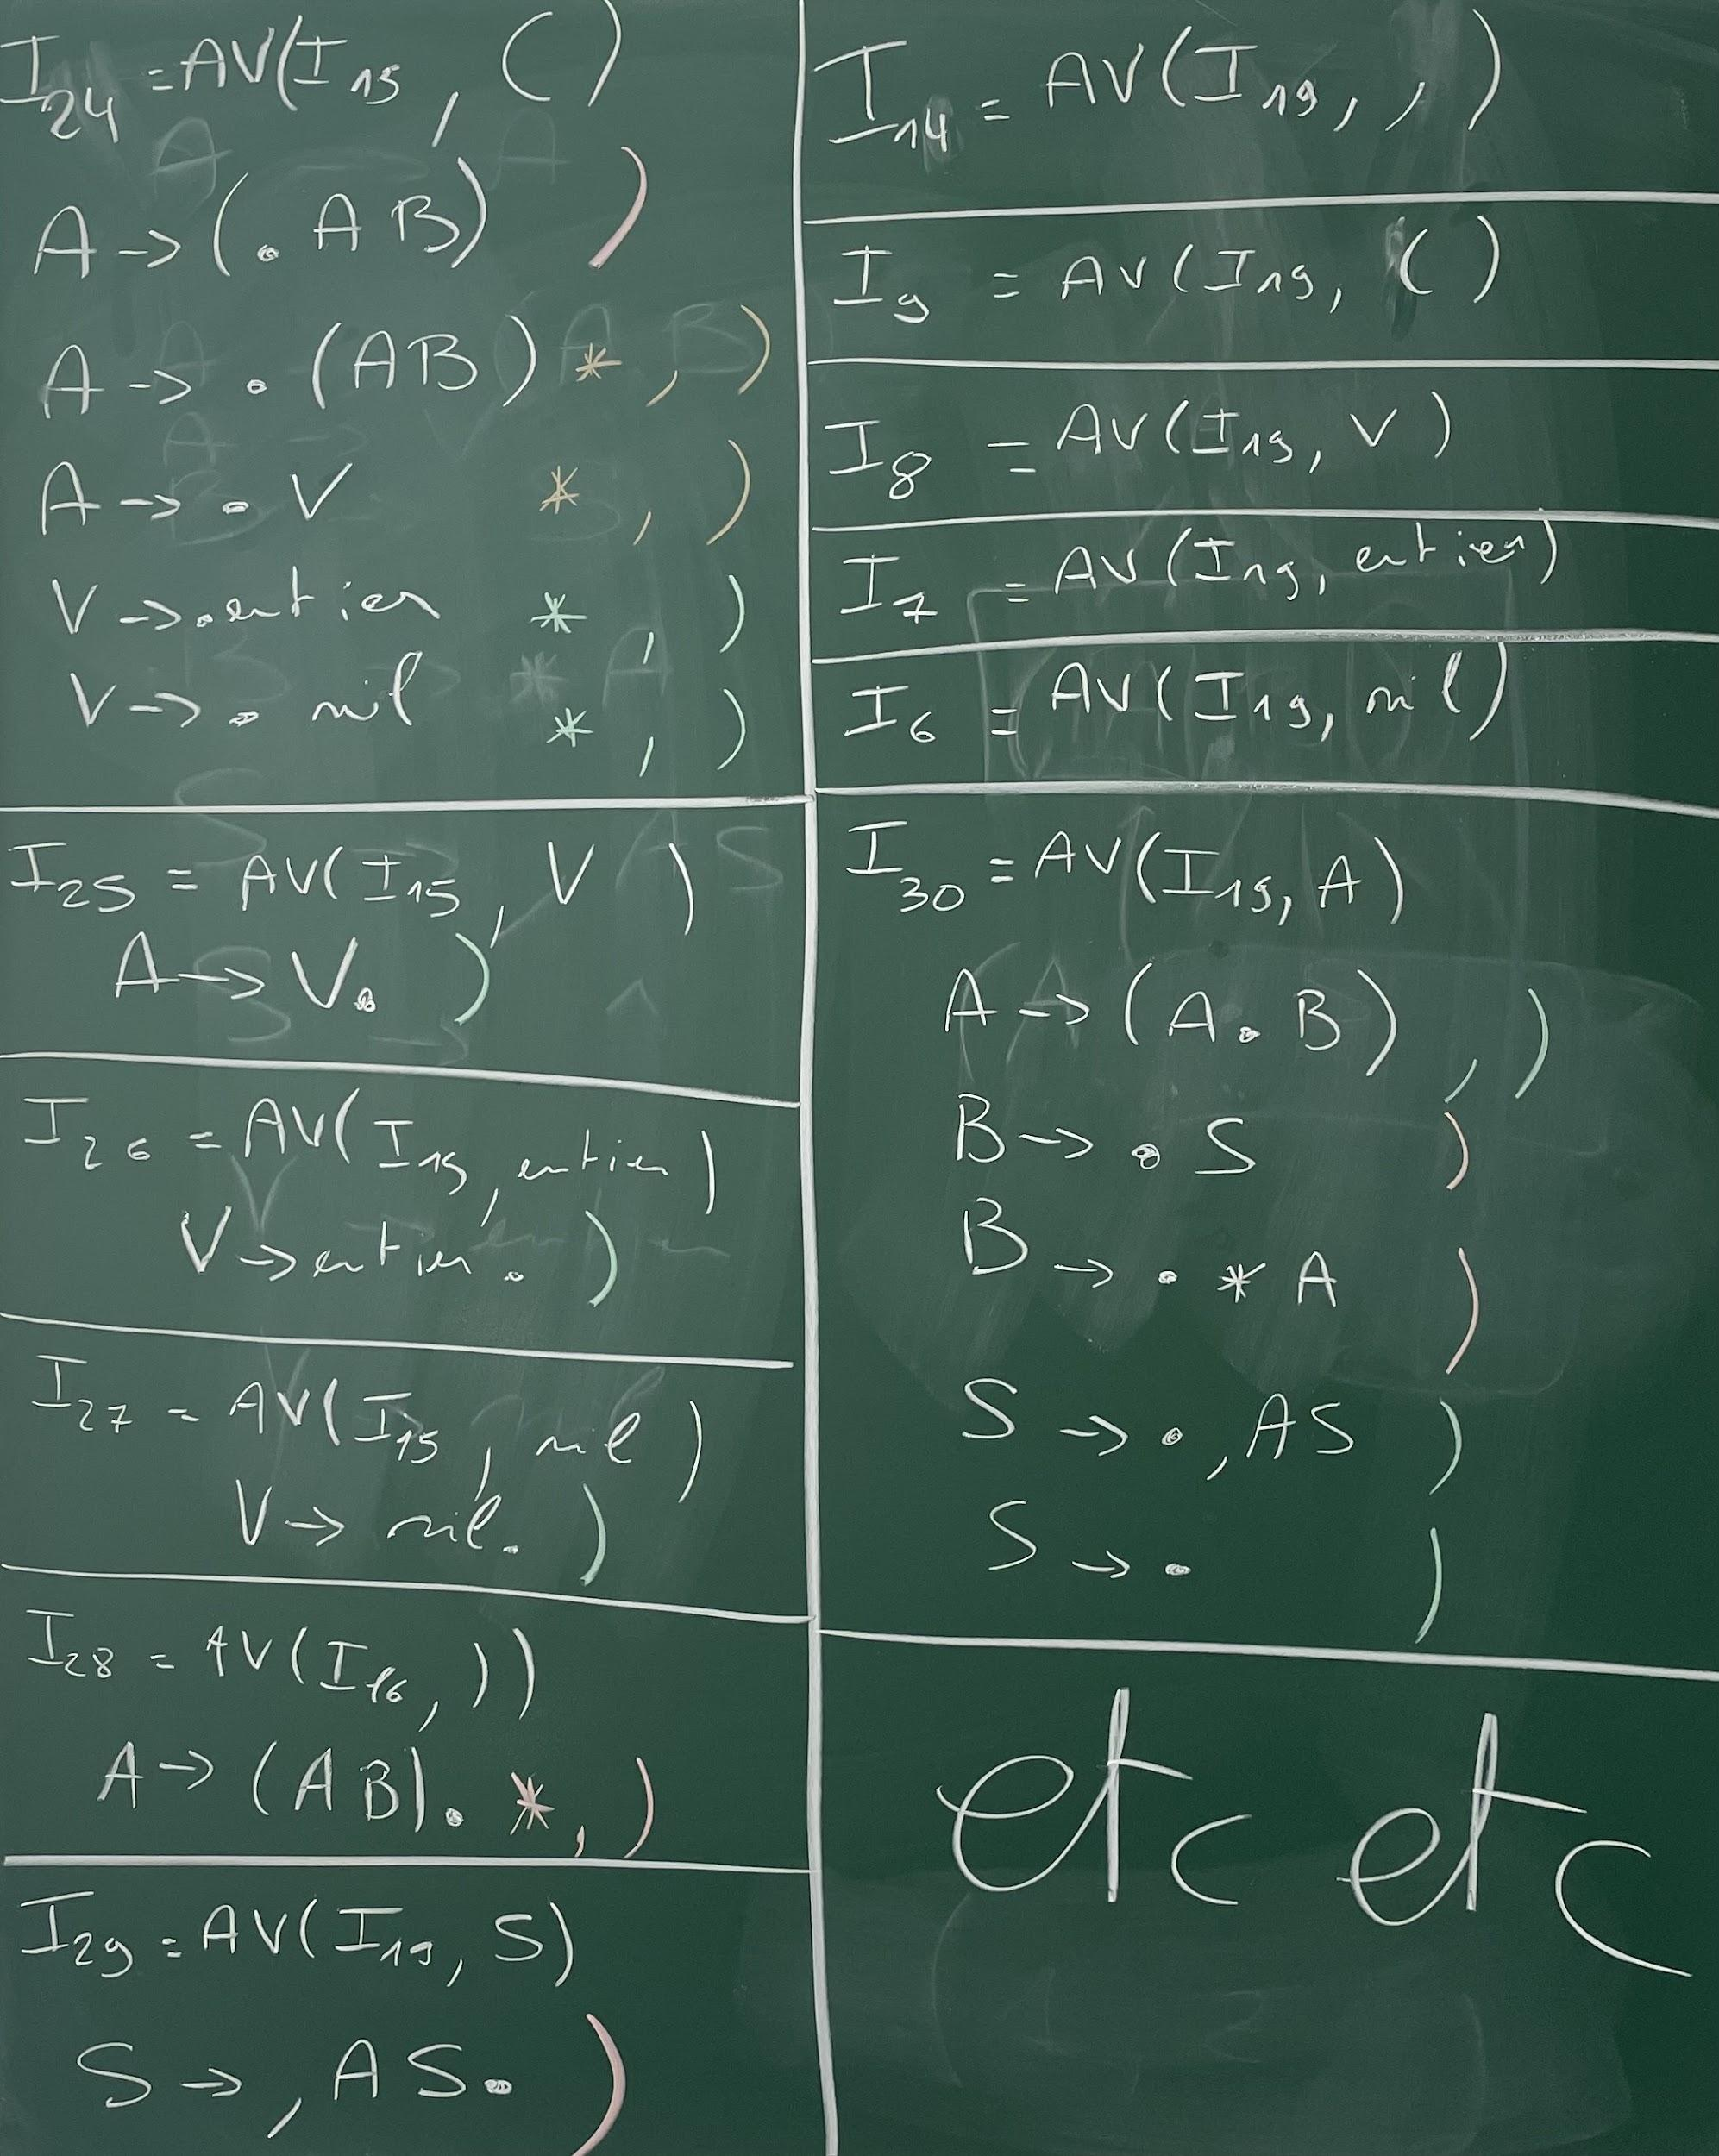 I24 = AV(I15, ()
A -> (. A B) )
A -> . (AB) * , )
A -> . V * , )
V -> . entier * , )
V -> . nil * , )
I25 = AV(I15, V )
A -> V. )
I26 = AV(I15, entier )
V -> entier. )
I27 = AV(I15, nil )
V -> nil. )
I28 = AV(I16, ))
A -> (AB). * , )
I29 = AV(I19, S)
S -> , A S. )
I14 = AV(I19, , )
I9 = AV(I19, ()
I8 = AV(I19, V )
I7 = AV(I19, entier)
I6 = AV(I19, nil)
I30 = AV(I19, A)
A -> (A. B) , )
B -> . S )
B -> . * A )
S -> . , AS )
S -> . )
etc etc